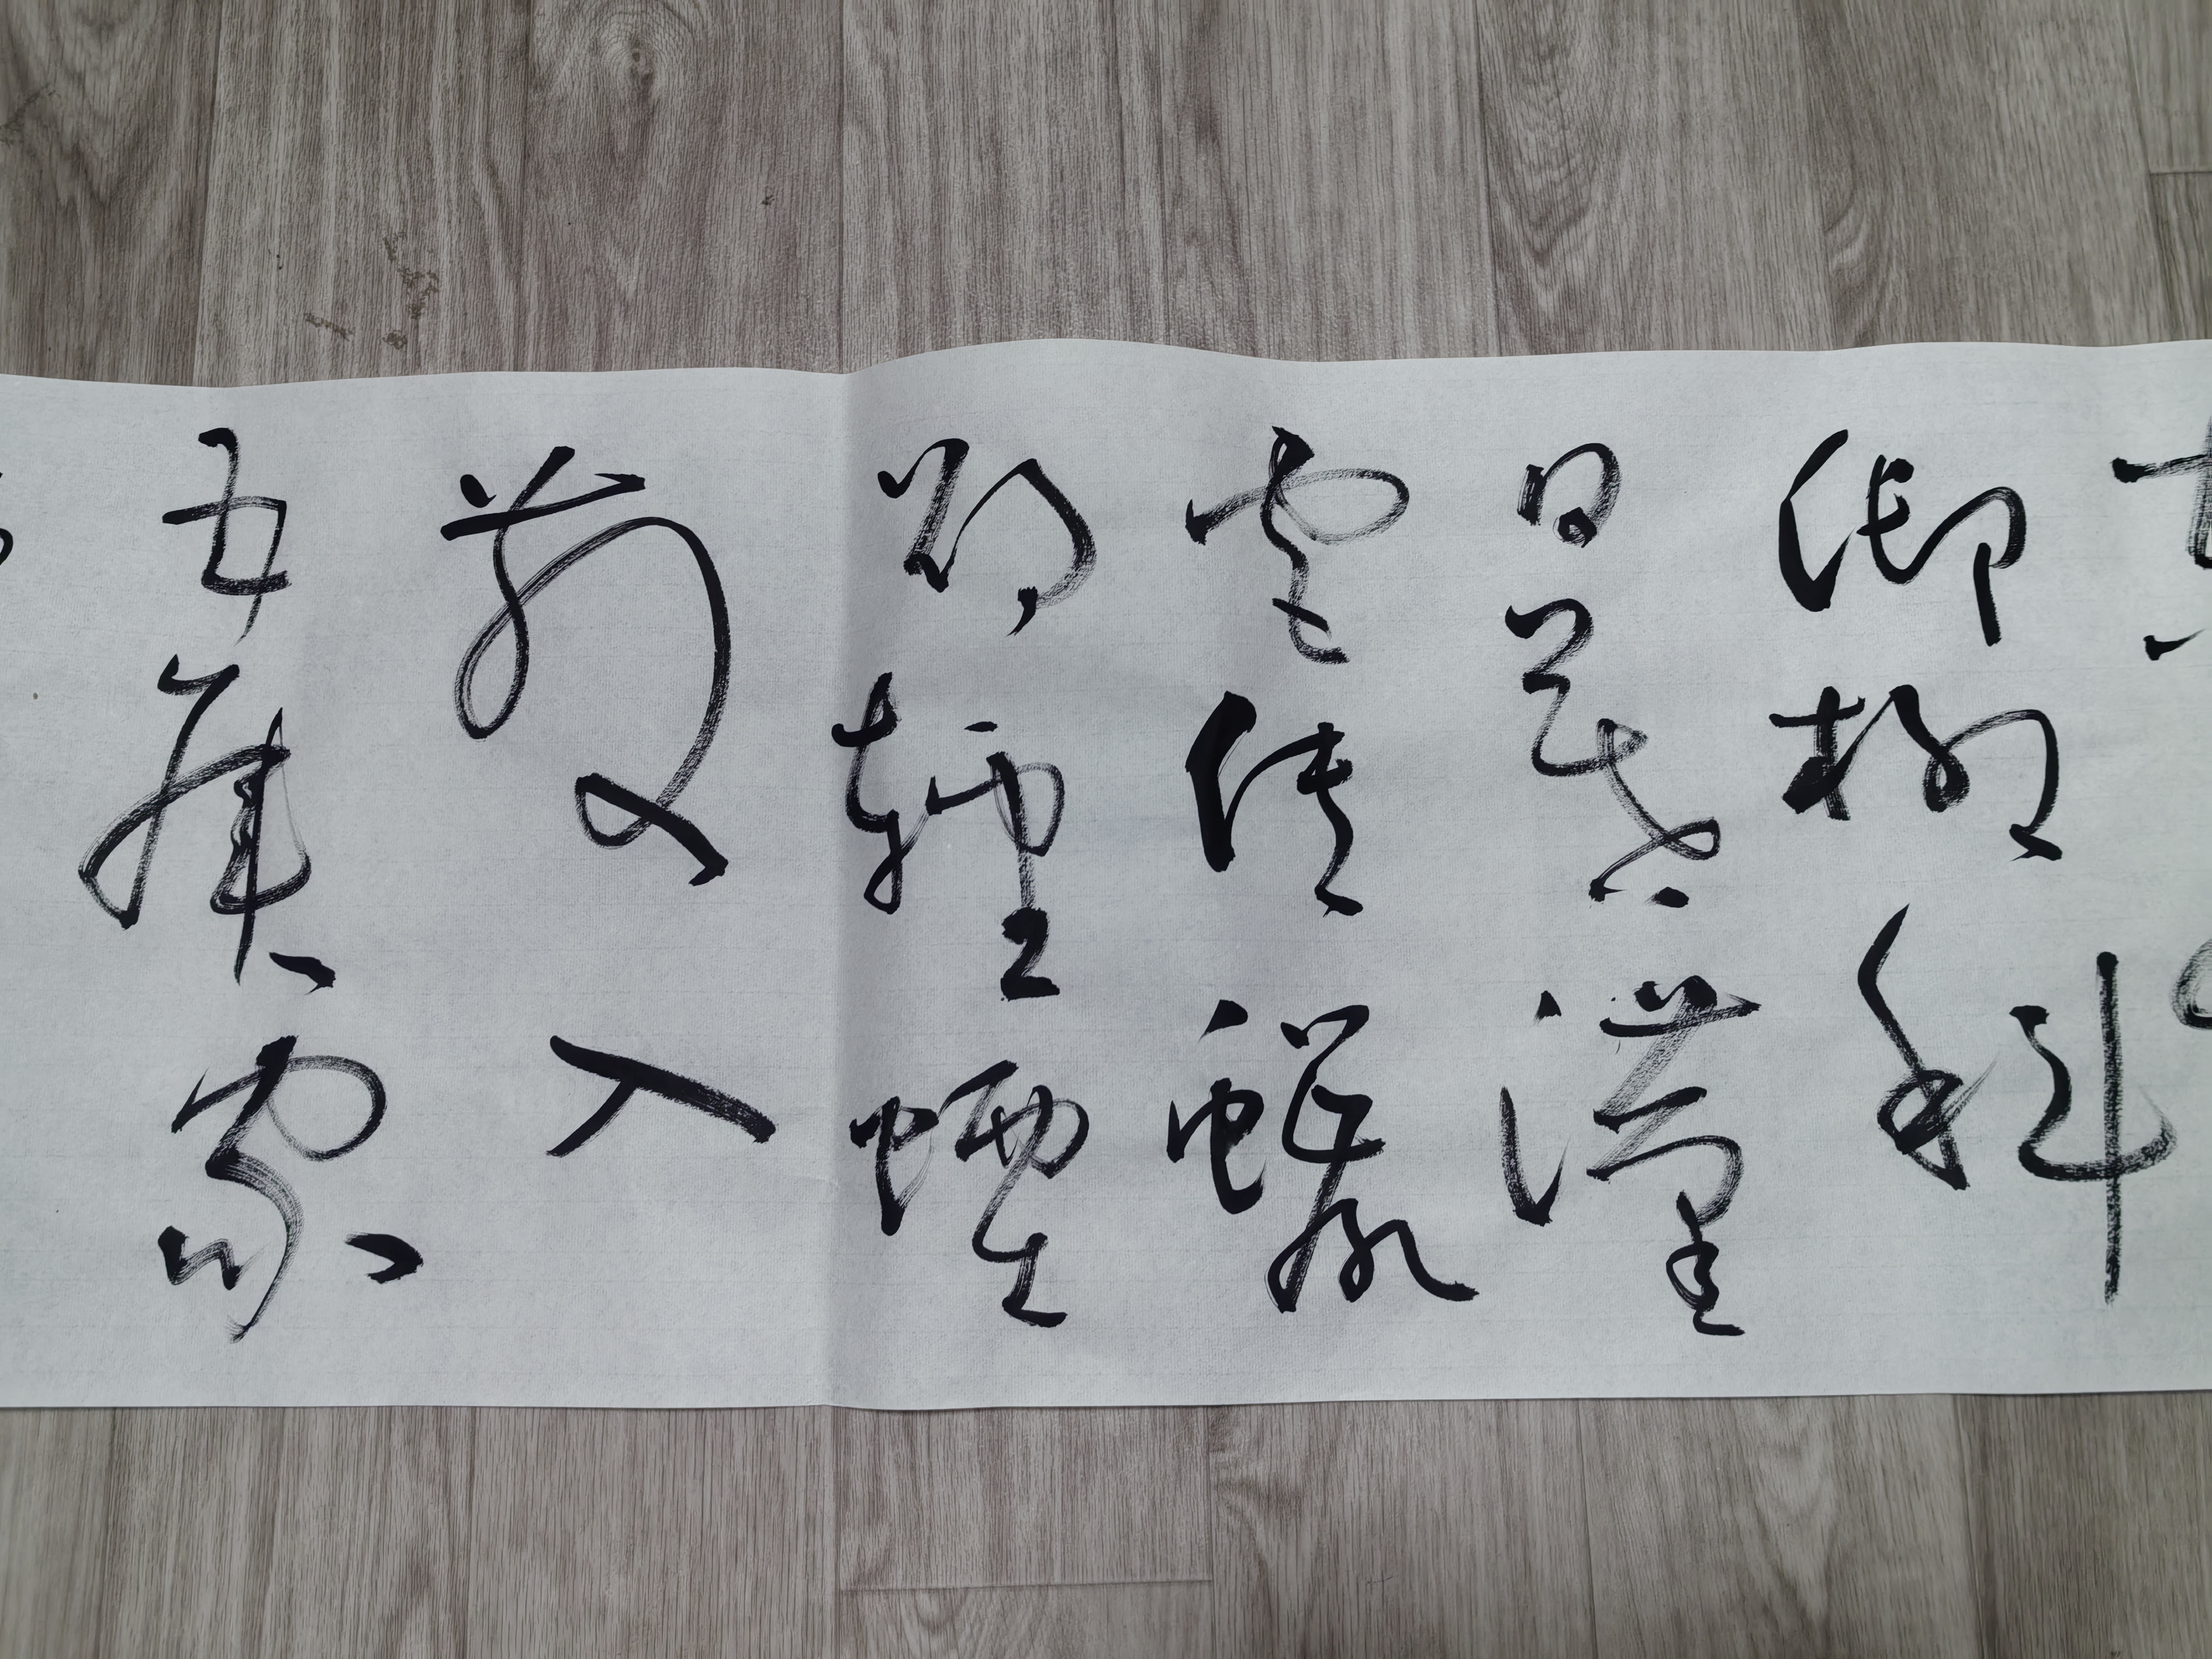 御柳斜
日暮漢
宮傳蠟
燭輕煙
散入
五侯家